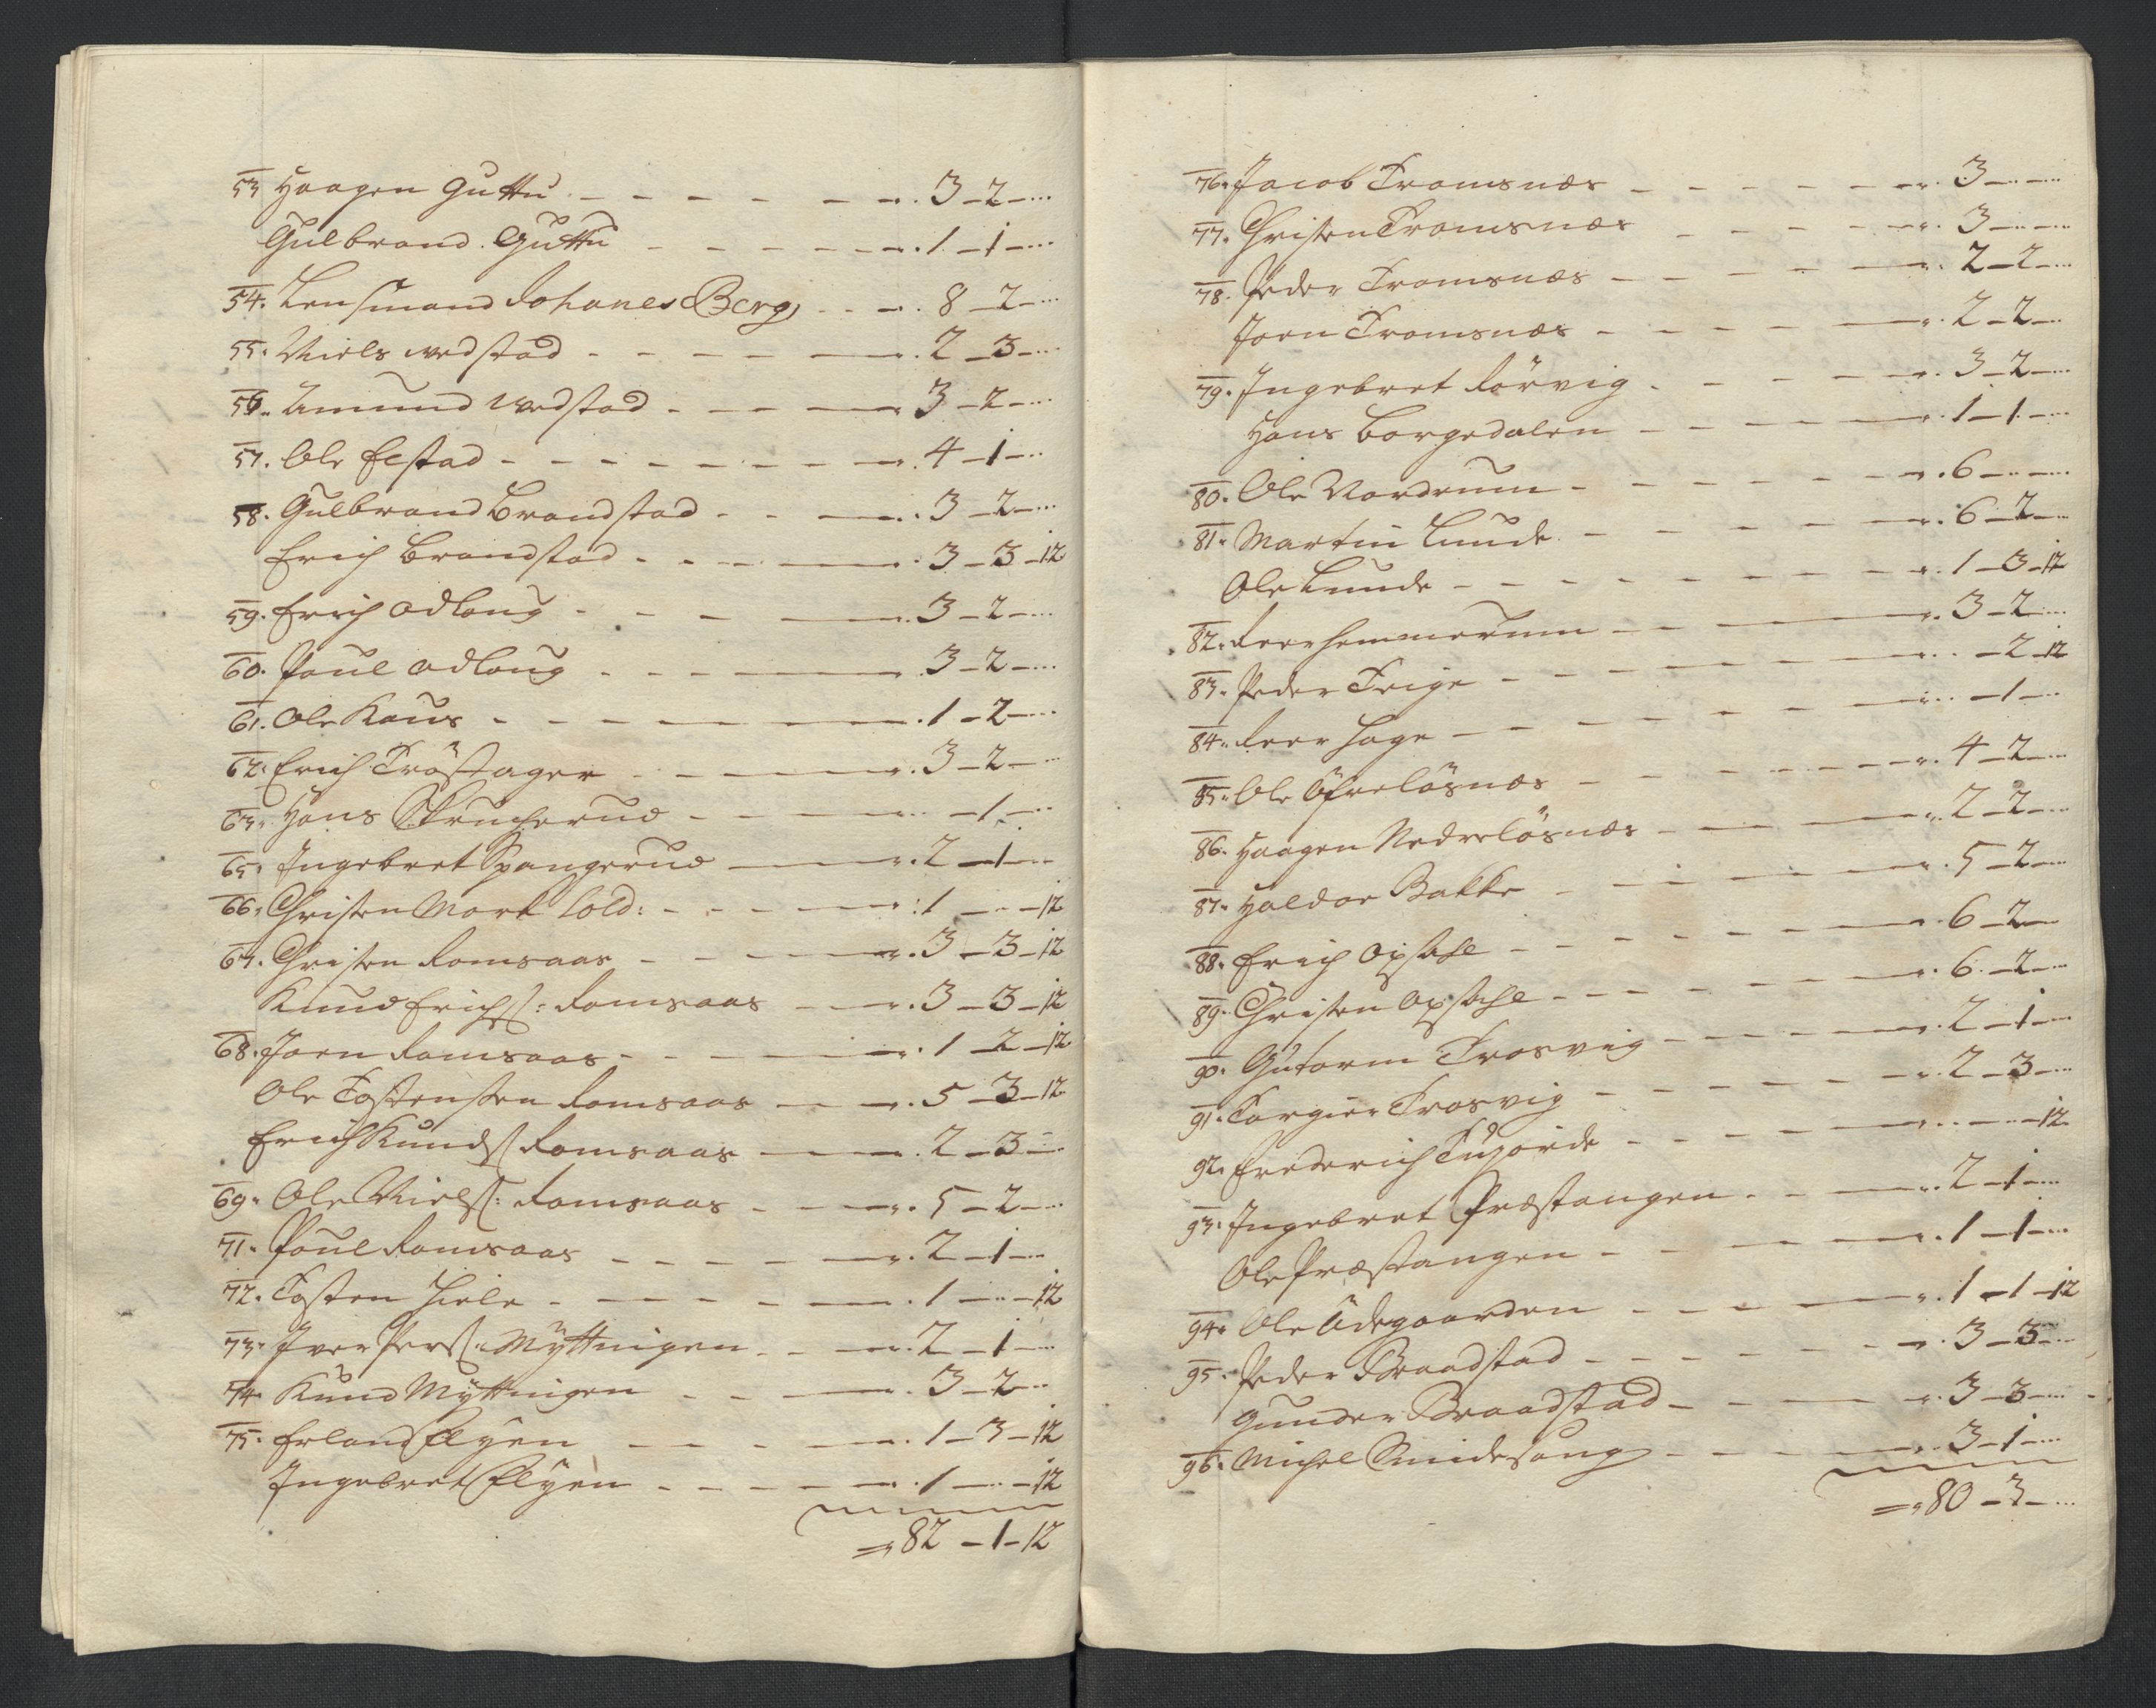 53 Haagen Guttu - - - - - - 3 - 2 - ...
Gulbrand Guttu - - - - - - 1 - 1 - ...
54. Lensmand Johanes Berg - - - 8 - 2 - ...
55. Niels wedstad - - - - - 2 - 3 - ...
56. Amund wedstad - - - - 3 - 2 - ...
57. Ole Eestad - - - - - - - 4 - 1 - ...
58. Gulbrand Brandstad - - - 3 - 2 - ...
Erich Brandstad - - - - 3 - 3 - 12
59. Erich Odlaug - - - - 3 - 2 - ...
60. Poul Odlaug - - - - 3 - 2 - ...
61. Ole Haus - - - - - 1 - 2 - ...
62. Erich Tröstager - - - - 3 - 2 - ...
63. Hans Skrucherud - - - - - 1 - ...
65. Ingebret Spangerud - - - 2 - 1 - ...
66. Christen Mort Sold: - - - - 1 - ... - 12
67. Christen Ramsaas - - - - 3 - 3 - 12
Knud Erichs: Ramsaas - - - 3 - 3 - 12
68. Joen Ramsaas - - - - 1 - 2 - 12
Ole Tostensen Ramsaas - - - 5 - 3 - 12
Erich Knuds Ramsaas - - - 2 - 3 - ...
69. Ole Niels: Ramsaas - - - 5 - 2 - ...
71. Poul Ramsaas - - - - - 2 - 1 - ...
72. Tosten Hiele - - - - - 1 - ... - 12
73. Iver Pers: Myttingen - - - 2 - 1 - ...
74. Knud Myttingen - - - - 3 - 2 - ...
75. Erland Elyen - - - - 1 - 3 - 12
Ingebret Elyen - - - - - 1 - ... - 12
= 82 - 1 - 12
76. Jacob Tromsnæs - - - - - - 3 - ... - ...
77. Christen Tromsnæs - - - - - 3 - ... - ...
78. Peder Tromsnæs - - - - - 2 - 2 - ...
Joen Tromsnæs - - - - - 2 - 2 - ...
79. Ingebret Rörvig - - - - - 3 - 2 - ...
Hans Borgedalen - - - - - 1 - 1 - ...
80. Ole Nordrum - - - - - - 6 - ... - ...
81. Martin Lunde - - - - - 6 - 2 - ...
Ole Lunde - - - - - - - 1 - 3 - 12
82. Reer Hemmerum - - - - 3 - 2 - ...
83. Peder Teige - - - - - - 2 - 12
84. Reer Hage - - - - - - - 1 - ...
85. Ole Öfrelösnæs - - - - - - 4 - 2 - ...
86. Haagen Nedrelösnæs - - - - 2 - 2 - ...
87. Haldor Bakke - - - - - 5 - 2 - ...
88. Erich Opsahl - - - - - - 6 - 2 - ...
89. Christen Opsahl - - - - - - 6 - 2 - ...
90. Gutorm Trosvig - - - - - 2 - 1 - ...
91. Torgier Trosvig - - - - - - 2 - 3 - ...
92. Frederich - - - - - - ... - 12
93. Ingebret Præstangen - - - 2 - 1 - ...
Ole Præstangen - - - - - 1 - 1 - ...
94. Ole Ödegaarden - - - - - 1 - 1 - 12
95. Peder Braadstad - - - - - - 3 - 3 - ...
Gunder Braadstad - - - - - 3 - 3 - ...
96. Michel Smidesang - - - - 3 - 1 - ...
= 80 - 3 - ...